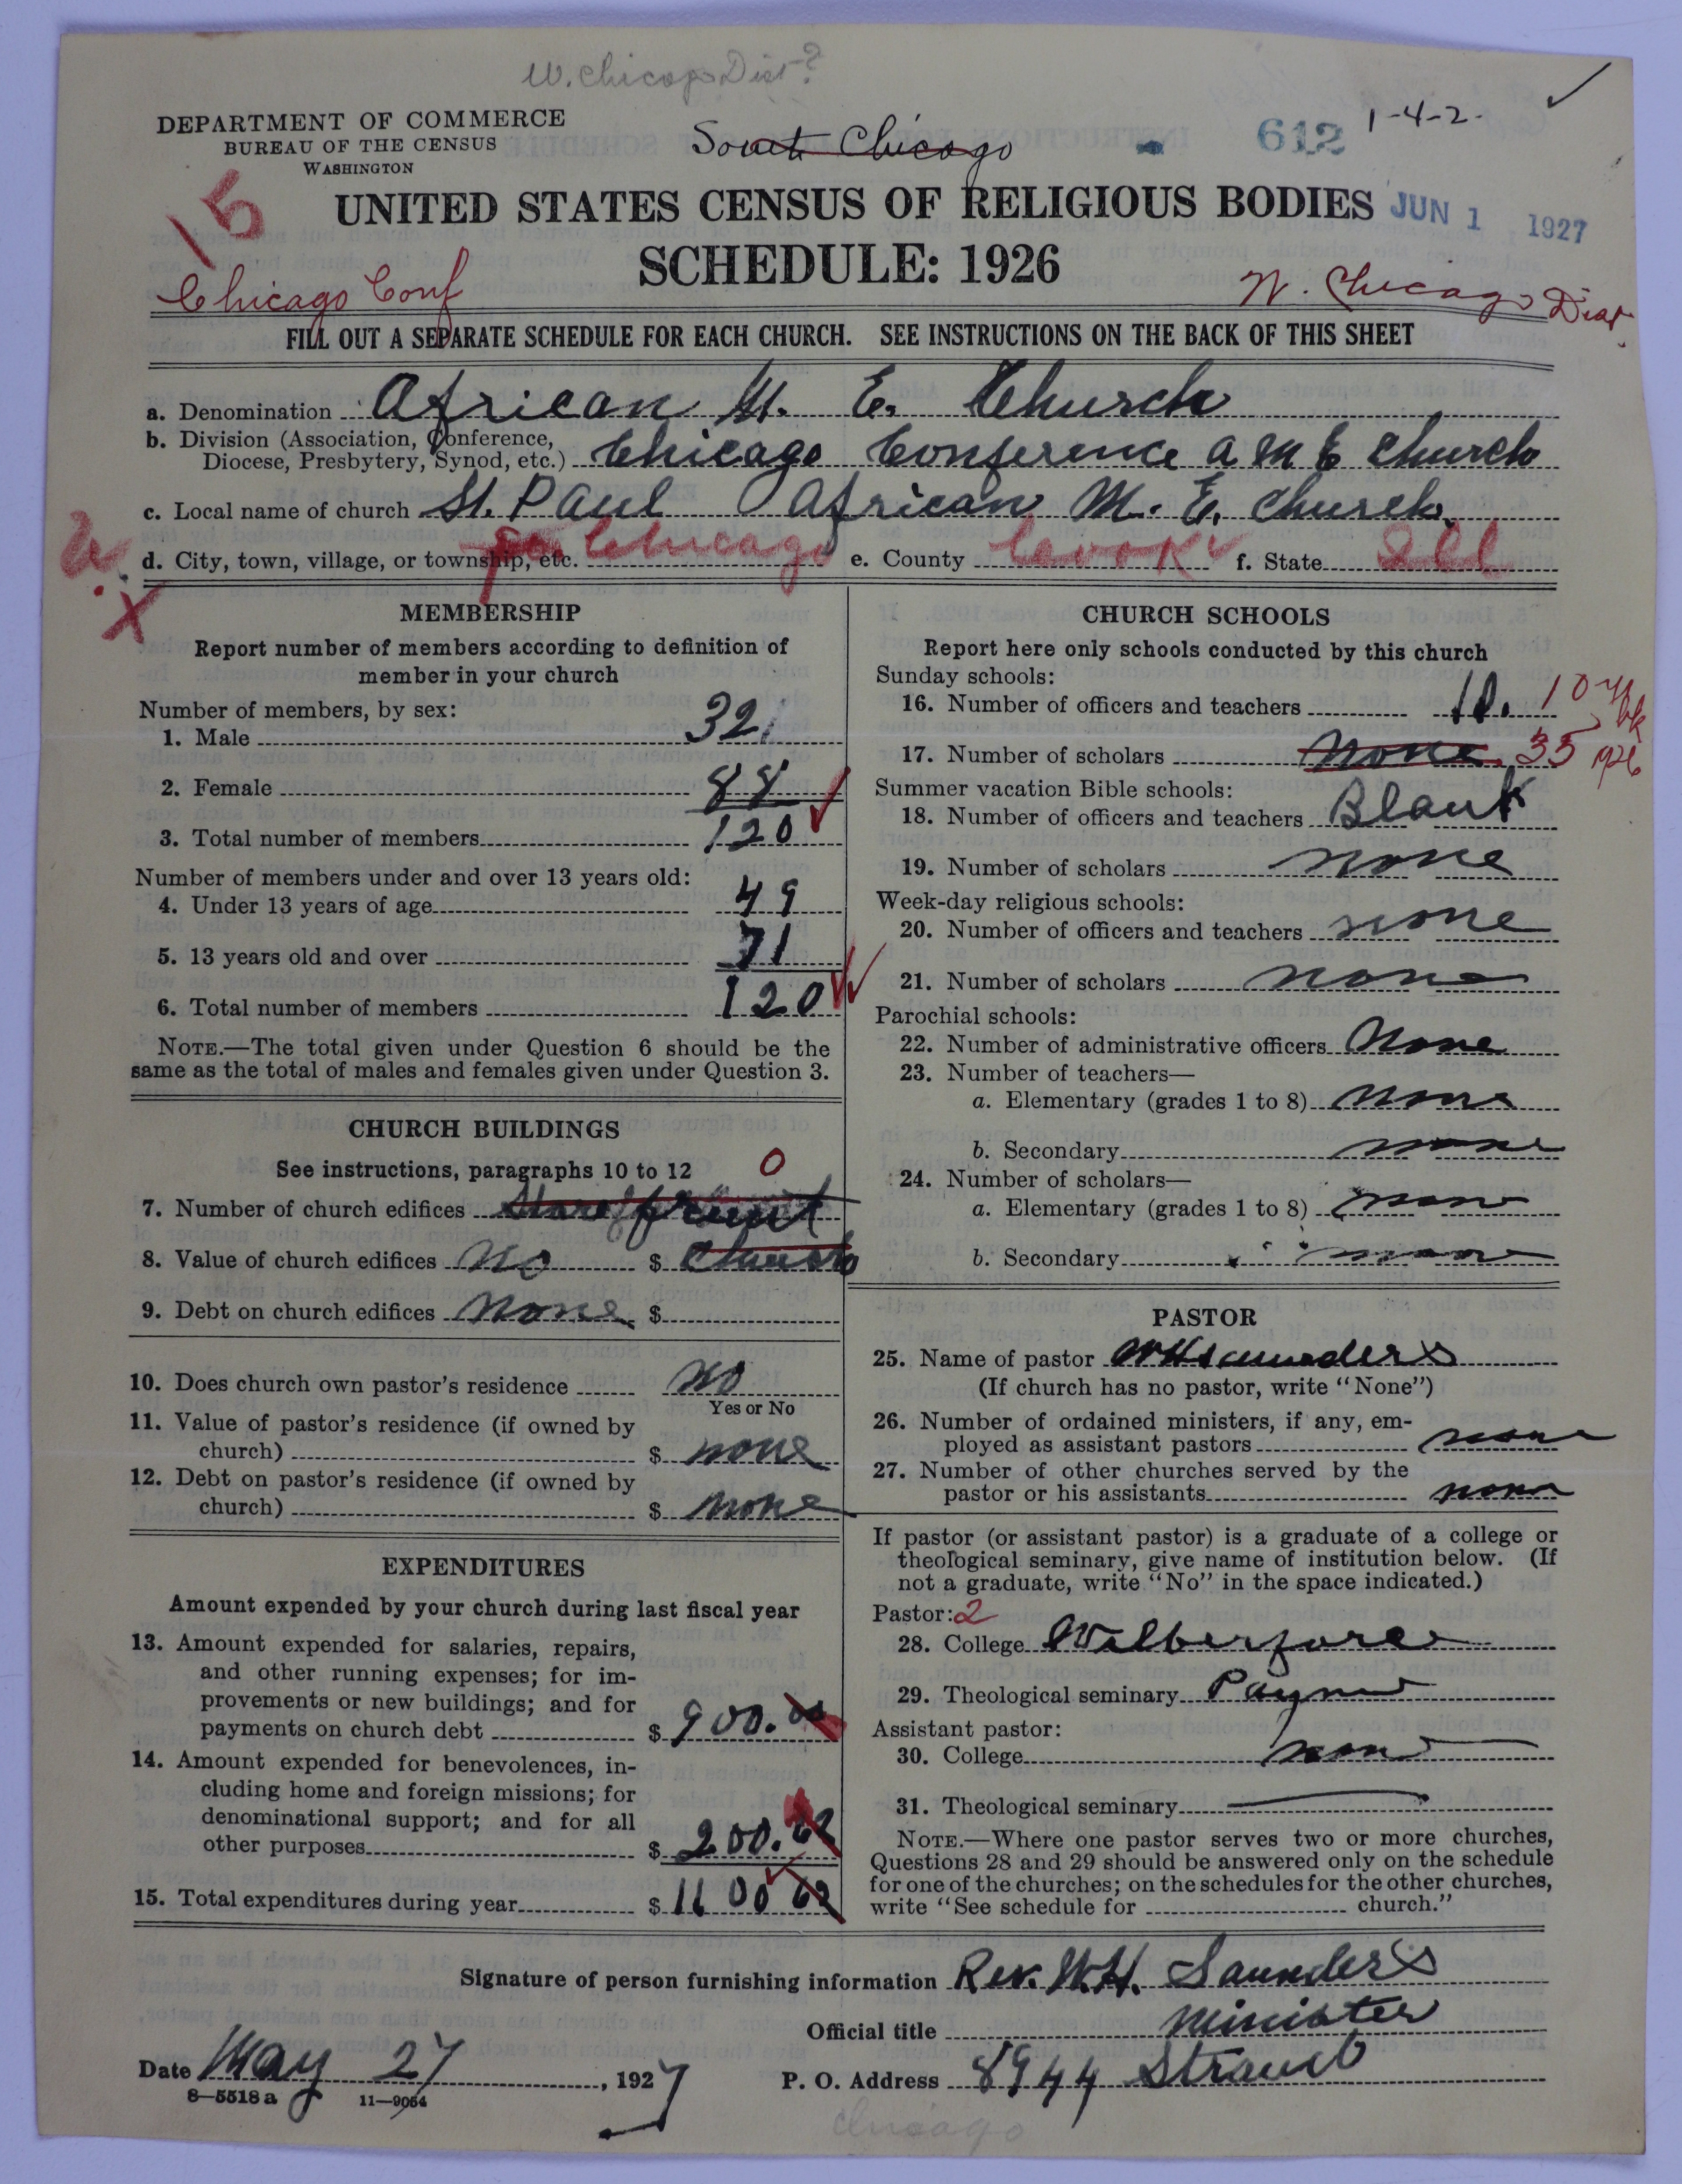 W. Chicago Dist?
DEPARTMENT OF COMMERCE
BUREAU OF THE CENSUS
WASHINGTON
South Chicago
612
1-4-2.
15
UNITED STATES CENSUS OF RELIGIOUS BODIES
JUN 1 1927
SCHEDULE: 1926
Chicago Conf
W. Chicago Dist.
FILL OUT A SEPARATE SCHEDULE FOR EACH CHURCH. SEE INSTRUCTIONS ON THE BACK OF THIS SHEET
a. Denomination African M. E. Church
b. Division (Association, Conference,
Diocese, Presbytery, Synod, etc.) Chicago Conference A M E Church
c. Local name of church St. Paul African M. E. Church.
d. City, town, village, or township, etc. So Chicago e. County Cook f. State Ill
MEMBERSHIP
Report number of members according to definition of
member in your church
Number of members, by sex:
1. Male 32
2. Female 88
3. Total number of members 120
Number of members under and over 13 years old:
4. Under 13 years of age 49
5. 13 years old and over 71
6. Total number of members 120
NOTE.—The total given under Question 6 should be the
same as the total of males and females given under Question 3.
CHURCH BUILDINGS
See instructions, paragraphs 10 to 12 0
7. Number of church edifices Store front
8. Value of church edifices No $ Church
9. Debt on church edifices None $
10. Does church own pastor's residence No
Yes or No
11. Value of pastor's residence (if owned by
church) $ none
12. Debt on pastor's residence (if owned by
church) $ none
EXPENDITURES
Amount expended by your church during last fiscal year
13. Amount expended for salaries, repairs,
and other running expenses; for im-
provements or new buildings; and for
payments on church debt $ 900.00
14. Amount expended for benevolences, in-
cluding home and foreign missions; for
denominational support; and for all
other purposes $ 200.62
15. Total expenditures during year $ 1100 62
CHURCH SCHOOLS
Report here only schools conducted by this church
Sunday schools:
16. Number of officers and teachers 10. 10
17. Number of scholars None. 35
Summer vacation Bible schools:
18. Number of officers and teachers Blank
19. Number of scholars none
Week-day religious schools:
20. Number of officers and teachers none
21. Number of scholars none
Parochial schools:
22. Number of administrative officers None
23. Number of teachers—
a. Elementary (grades 1 to 8) none
b. Secondary none
24. Number of scholars—
a. Elementary (grades 1 to 8) none
b. Secondary none
PASTOR
25. Name of pastor WH Saunders
(If church has no pastor, write "None")
26. Number of ordained ministers, if any, em-
ployed as assistant pastors none
27. Number of other churches served by the
pastor or his assistants none
If pastor (or assistant pastor) is a graduate of a college or
theological seminary, give name of institution below. (If
not a graduate, write "No" in the space indicated.)
Pastor: 2
28. College Wilberforce
29. Theological seminary Payne
Assistant pastor:
30. College none
31. Theological seminary
NOTE.—Where one pastor serves two or more churches,
Questions 28 and 29 should be answered only on the schedule
for one of the churches; on the schedules for the other churches,
write "See schedule for church."
Signature of person furnishing information Rev. W.H. Saunders
Official title Minister
Date May 27, 1927 P. O. Address 8944 Strand
8—5518 a 11—9054
Chicago